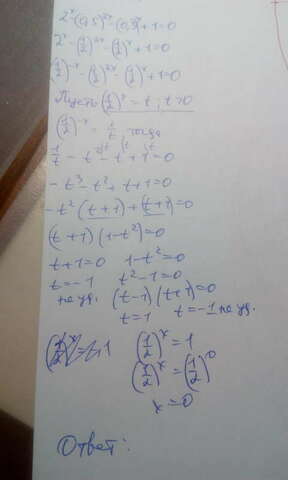 2ˣ-(0,5)²ˣ-(0,5)ˣ+1=0
2ˣ-(1/2)²ˣ-(1/2)ˣ+1=0
(1/2)⁻ˣ-(1/2)²ˣ-(1/2)ˣ+1=0
Пусть (1/2)ˣ=t, t>0
(1/2)⁻ˣ=1/t, тогда
1/t-t²-t+1=0
-t³-t²+t+1=0
-t²(t+1)+(t+1)=0
(t+1)(1-t²)=0
t+1=0 1-t²=0
t=-1 t²-1=0
не уд. (t-1)(t+1)=0
t=1 t=-1 не уд.
(1/2)ˣ=1
(1/2)ˣ=(1/2)⁰
x=0
Ответ: